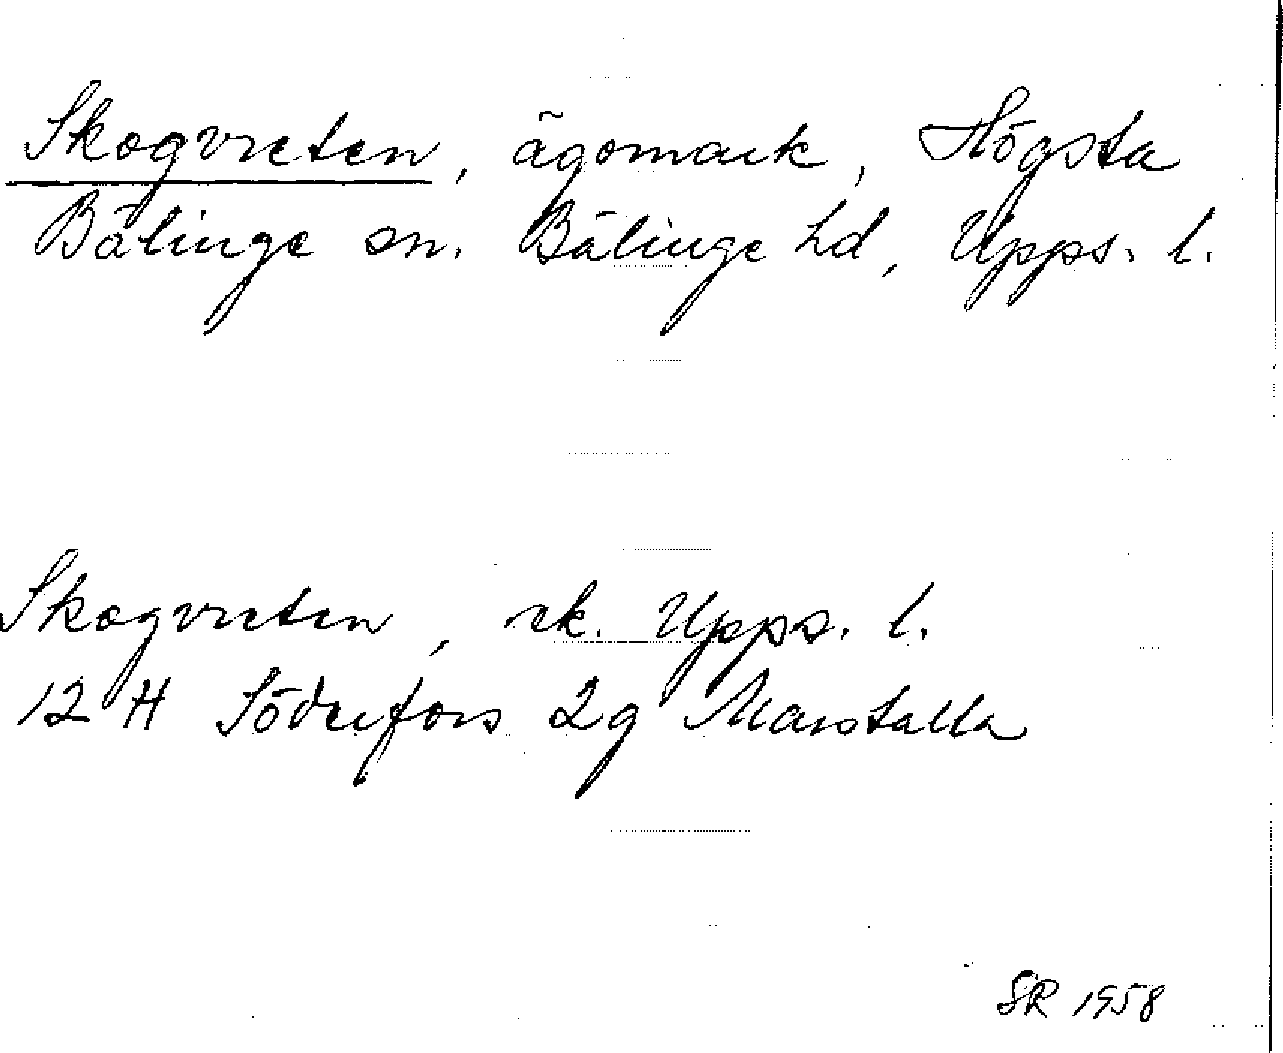 Skogvreten, ägomark, Högsta
Bälinge sn. Bälinge hd, Upps. l.
Skogvreten, ek. Upps. l.
12 H Söderfors 2g Marstalla
SR 1958